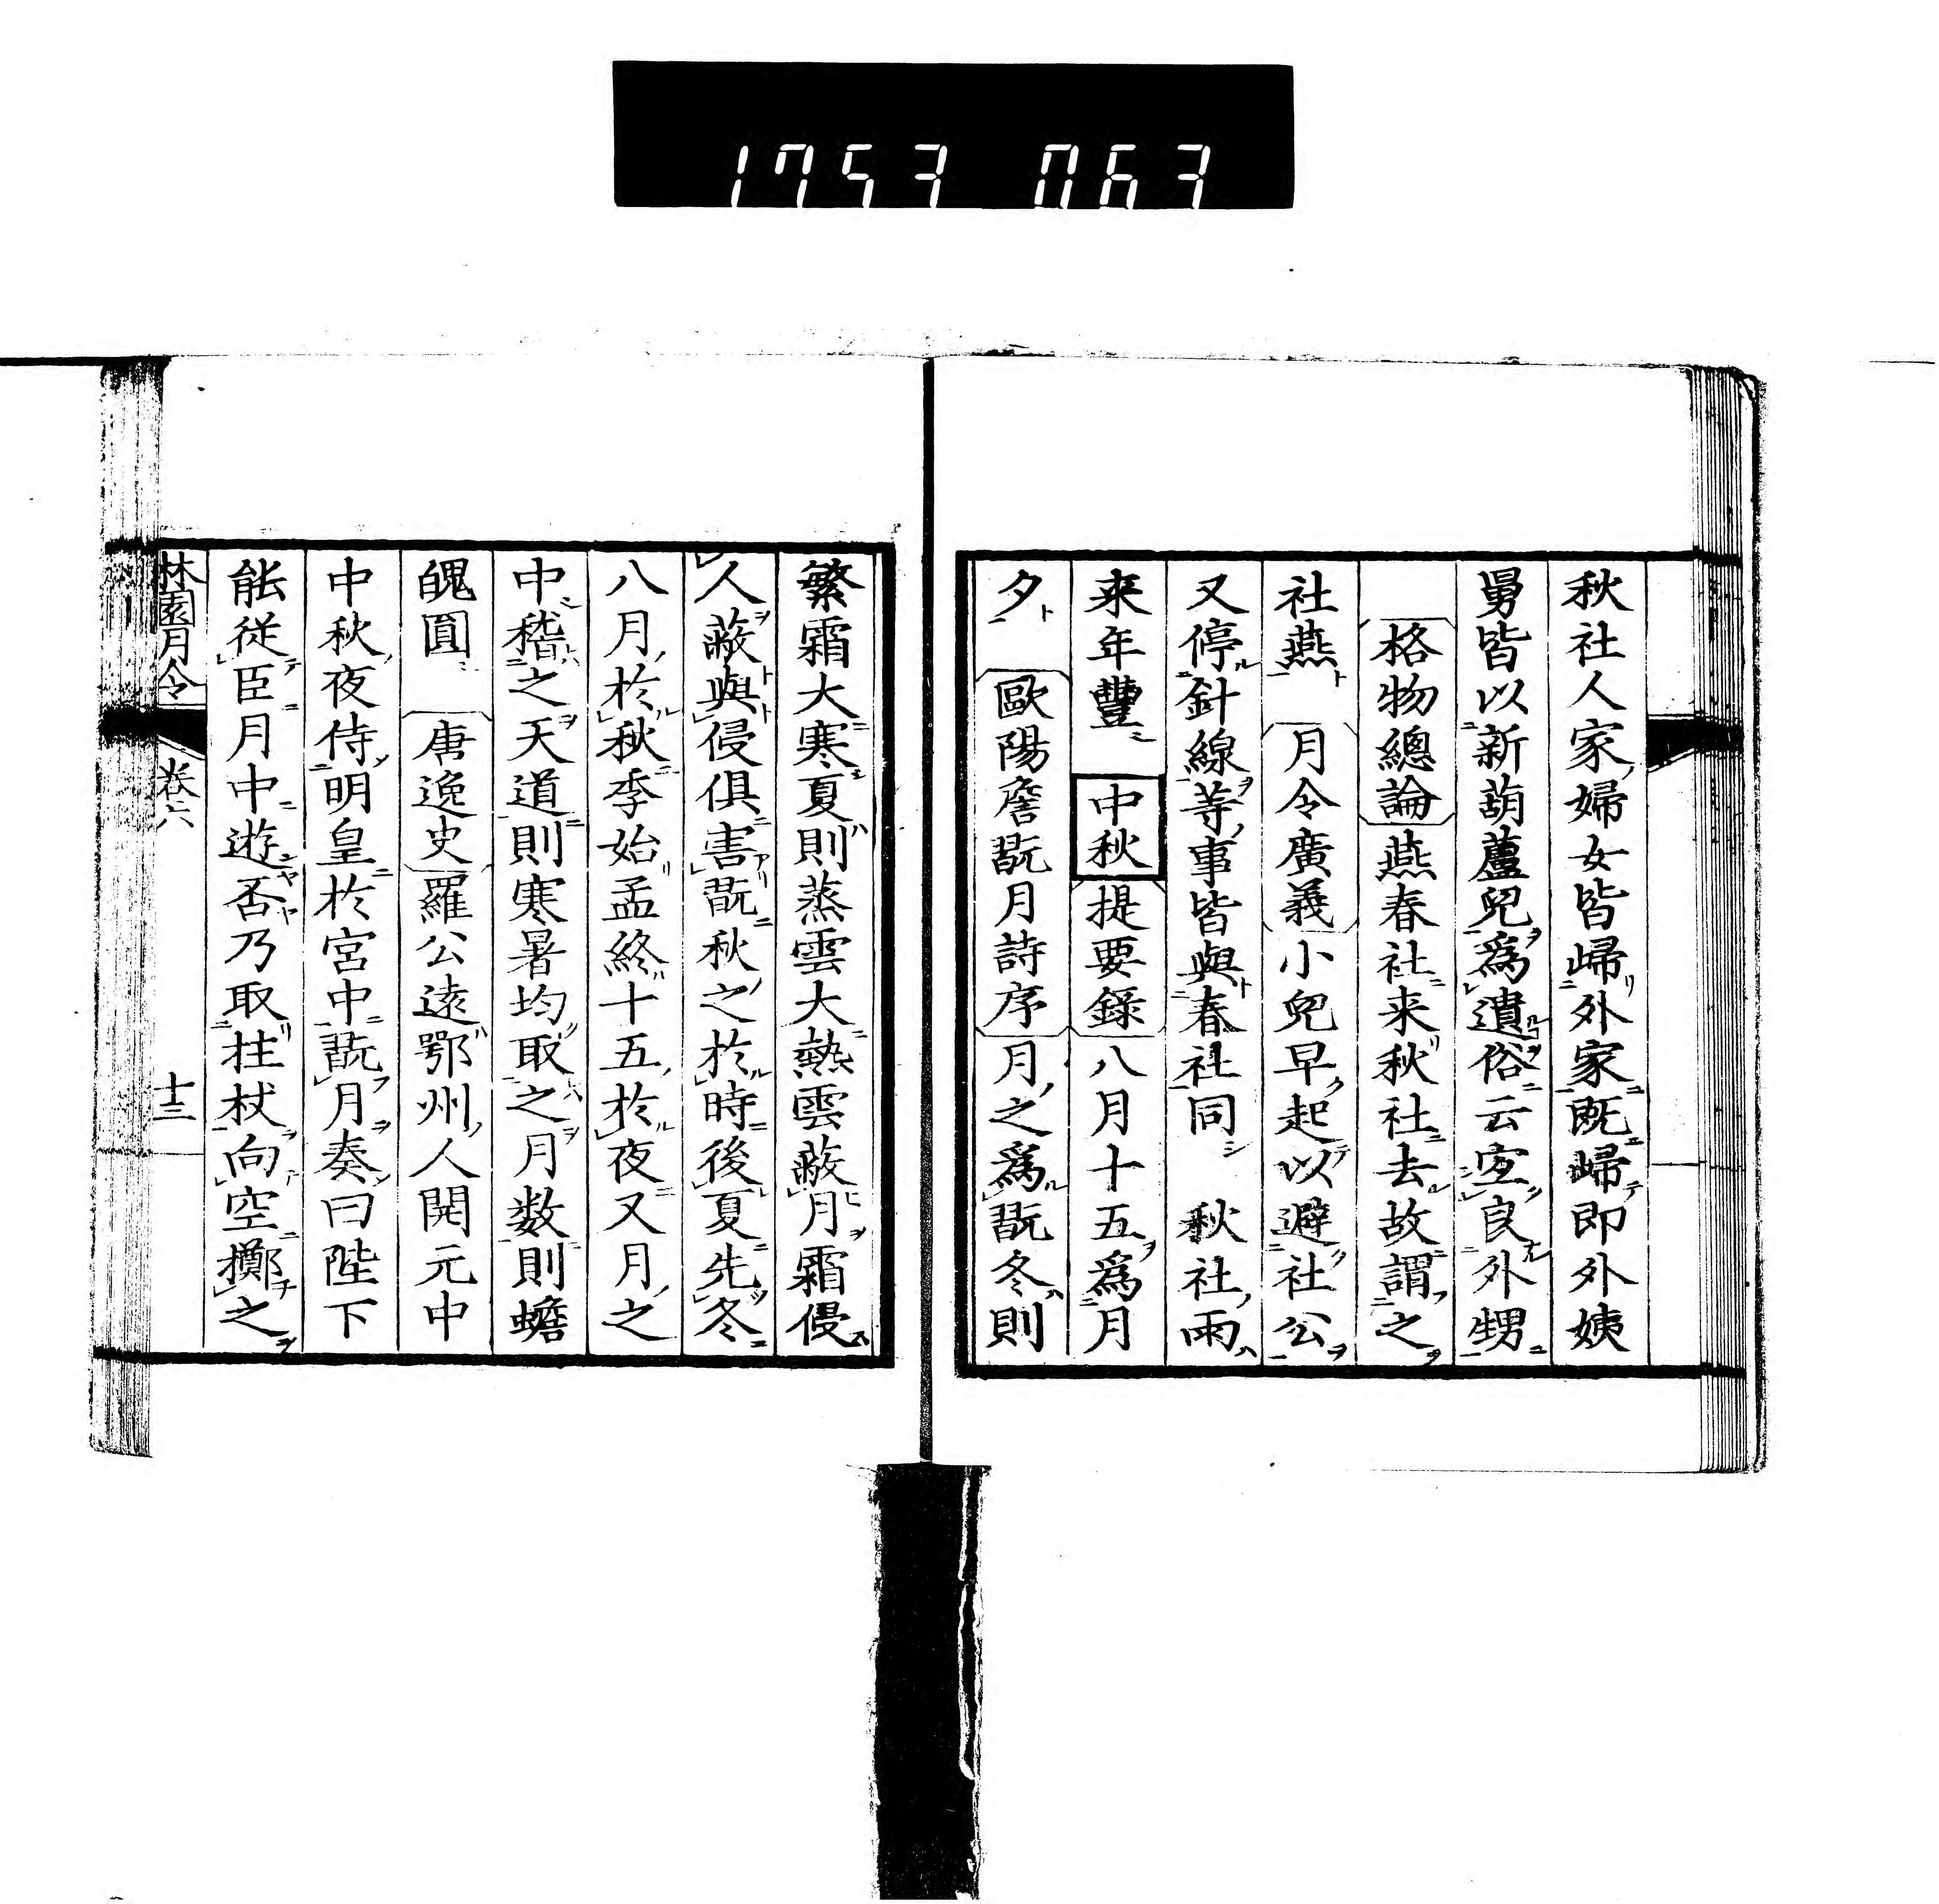 1753 063
秋社人家婦女皆歸外家既歸即外姨
舅皆以新葫蘆兒爲遺俗云宜良外甥
格物總論燕春社来秋社去故謂之
社燕 月令廣義小兒早起以避社公
又停針線等事皆與春社同 秋社雨
来年豐 中秋 提要錄八月十五爲月
夕 歐陽詹翫月詩序月之爲翫冬則
繁霜大寒夏則蒸雲大熱雲蔽月霜侵
人蔽與侵俱害翫秋之於時後夏先冬
八月於秋季始孟終十五於夜又月之
中稽之天道則寒暑均取之月数則蟾
魄圓 唐逸史羅公遠鄂州人開元中
中秋夜侍明皇於宮中翫月奏曰陛下
能従臣月中遊否乃取拄杖向空擲之
林園月令 卷六 十三